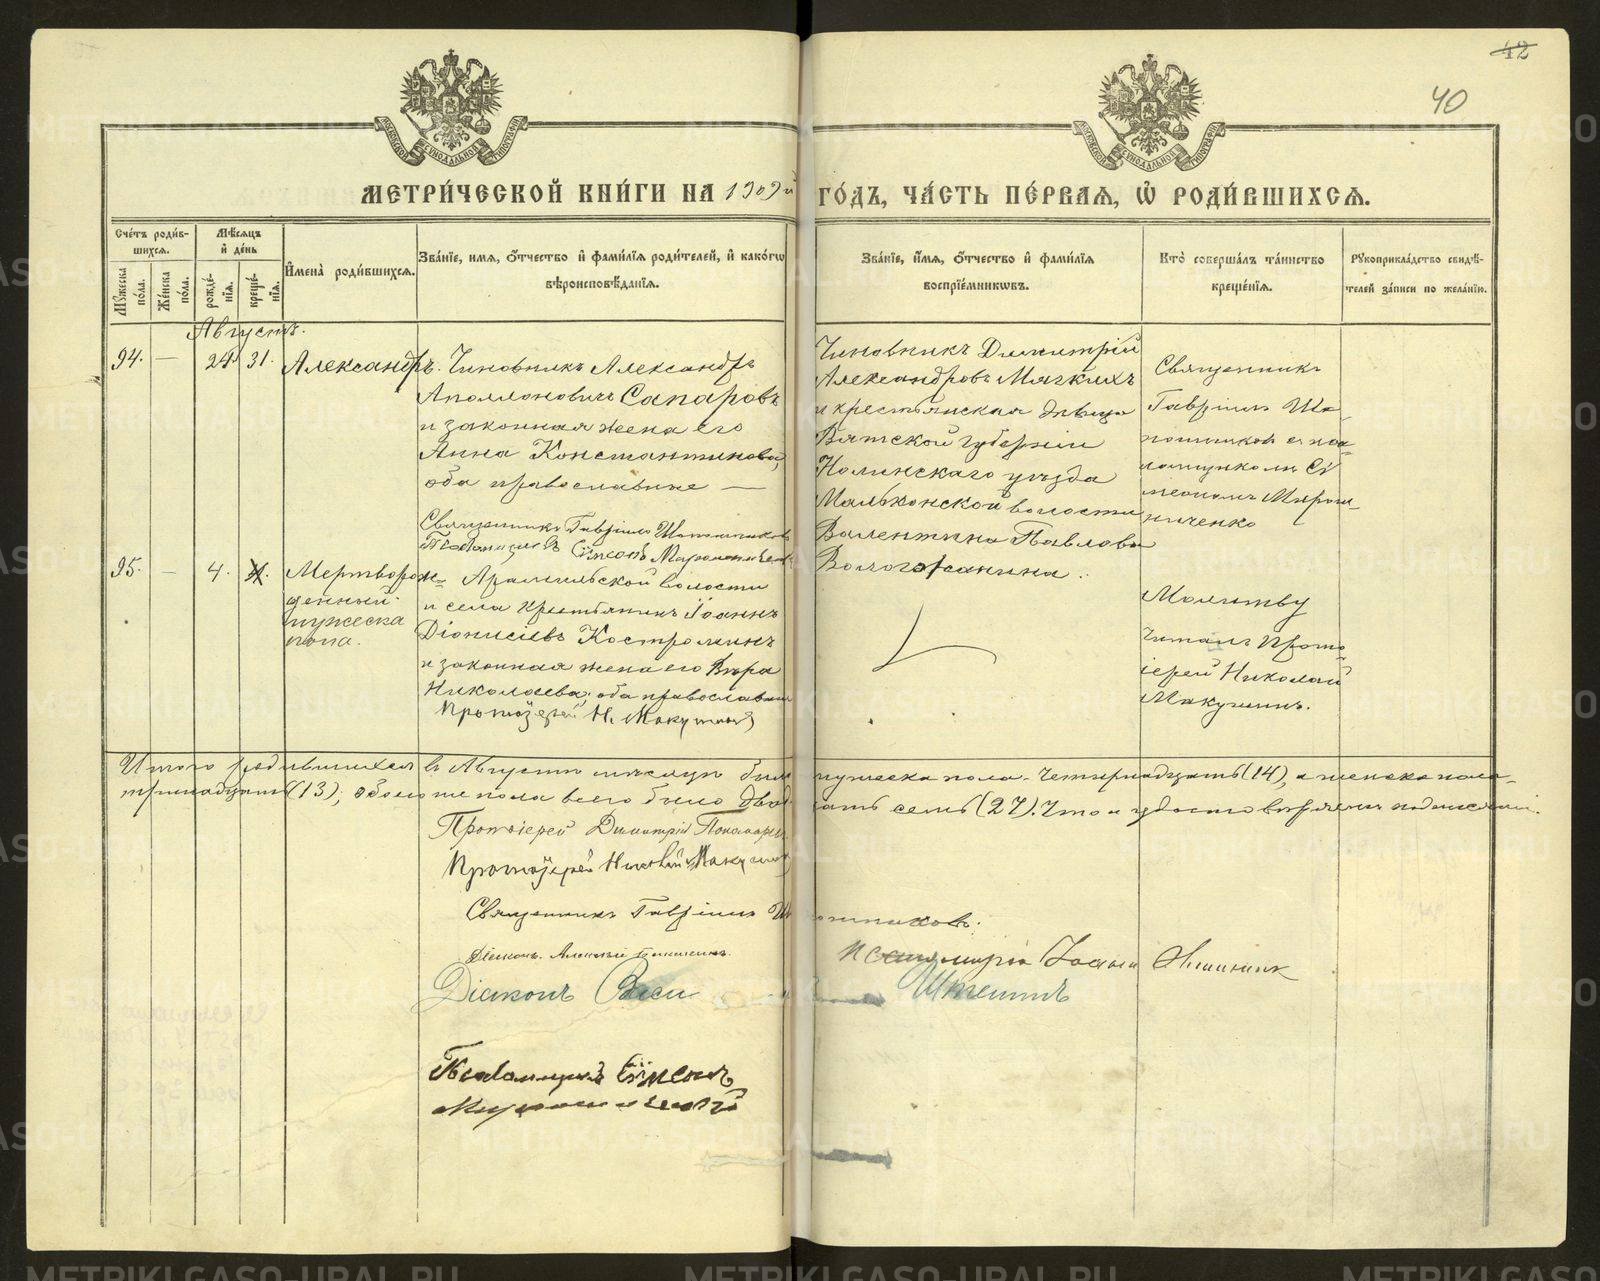 42
40
МОСКОВСКОЙ СѴНОДАЛЬНОЙ ТИПОГРАФІИ
МОСКОВСКОЙ СѴНОДАЛЬНОЙ ТИПОГРАФІИ
МЕТРИ́ЧЕСКОЙ КНИ́ГИ НА 1909й ГО́ДЪ, ЧА́СТЬ ПЕ́РВАЯ, Ѡ РОДИ́ВШИХСЯ.
Сче́тъ роди́в-
шихся.
Мꙋжеска по́ла.
Же́нска по́ла.
Мѣ́сяцъ
и де́нь
рожде́-
нїя.
креще́-
нїя.
Имена̀ роди́вшихся.
Зва́нїе, имя, о́тчество и фами́лїя роди́телей, и како́гѡ
вѣроисповѣ́данїя.
Зва́нїе, и́мя, о́тчество и фами́лїя
воспрїе́мникѡвъ.
Кто̀ соверша́лъ та́инство
креще́нїя.
Рꙋкоприкла́дство свидѣ́-
телей за́писи по жела́нїю.
Августъ.
94. — 24. 31. Александръ.
Чиновникъ Александръ
Аполлоновичъ Сапаровъ
и законная жена его
Анна Константинова,
оба православные —
Священникъ Гавріилъ Шапошниковъ
Псаломщикъ Сѵмеонъ
Чиновникъ Димитрій
Александровъ Мягкихъ
и крестьянская дѣвица
Вятской губерніи
Нолинскаго уѣзда
волости
Валентина Павлова
Вологжанина.
Священникъ
Гавріилъ Ша-
пошниковъ съ пса-
ломщикомъ Сѵ-
меономъ Мирош-
ниченко
95. — 4. Мертворож-
денный
мужеска
пола.
Арамильской волости
и села крестьянинъ Іоаннъ
Діонисіевъ Костроминъ
и законная жена его Вѣра
Николаева, оба православные
Протоіерей Н. Макушинъ
Молитву
читалъ Прото-
іерей Николай
Макушинъ.
Итого родившихся въ Августѣ мѣсяцѣ было мужеска пола - четырнадцать (14), а женска пола -
тринадцать (13); обоего же пола всего было двадцать семь (27). Что и удостовѣряемъ подписями.
Протоіерей Димитрій Пономаревъ
Протоіерей Николай Макушинъ
Священникъ Гавріилъ Шапошниковъ.
Діаконъ
Діаконъ Васи
Іоаннъ
Псаломщикъ Сѵмеонъ
METRIKI.GASO-URAL.RU